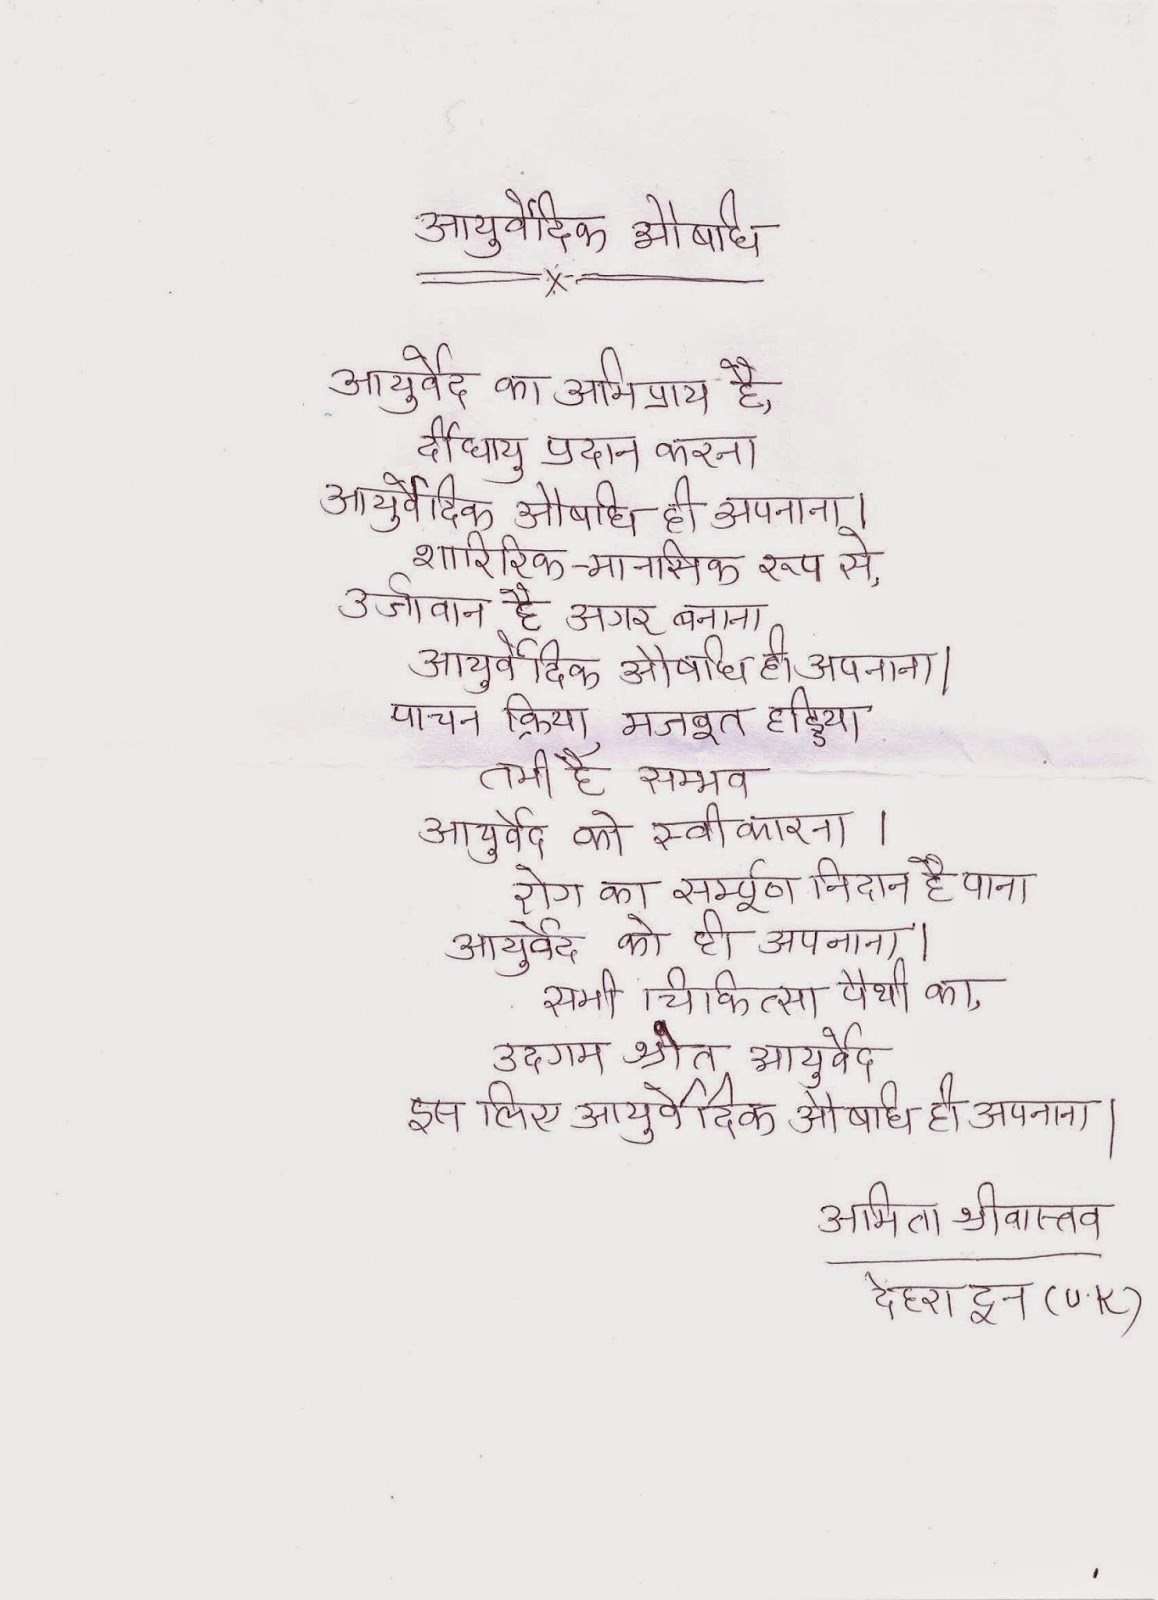 आयुर्वेदिक औषधि
आयुर्वेद का अभिप्राय है,
र्दीधायु प्रदान करना
आयुर्वेदिक औषधि ही अपनाना।
शारिरिक-मानसिक रूप से,
उर्जावान है अगर बनाना
आयुर्वेदिक औषधि ही अपनाना।
पाचन क्रिया, मजबूत हड्डिया
तभी है सम्भव
आयुर्वेद को स्वीकारना ।
रोग का सर्म्पूण निदान है पाना
आयुर्वेद को ही अपनाना।
सभी चिकित्सा पैथी का,
उदगम श्रोत, आयुर्वेद
इस लिए आयुर्वेदिक औषधि ही अपनाना।
अमिता श्रीवास्तव
देहरा दून (U.K)